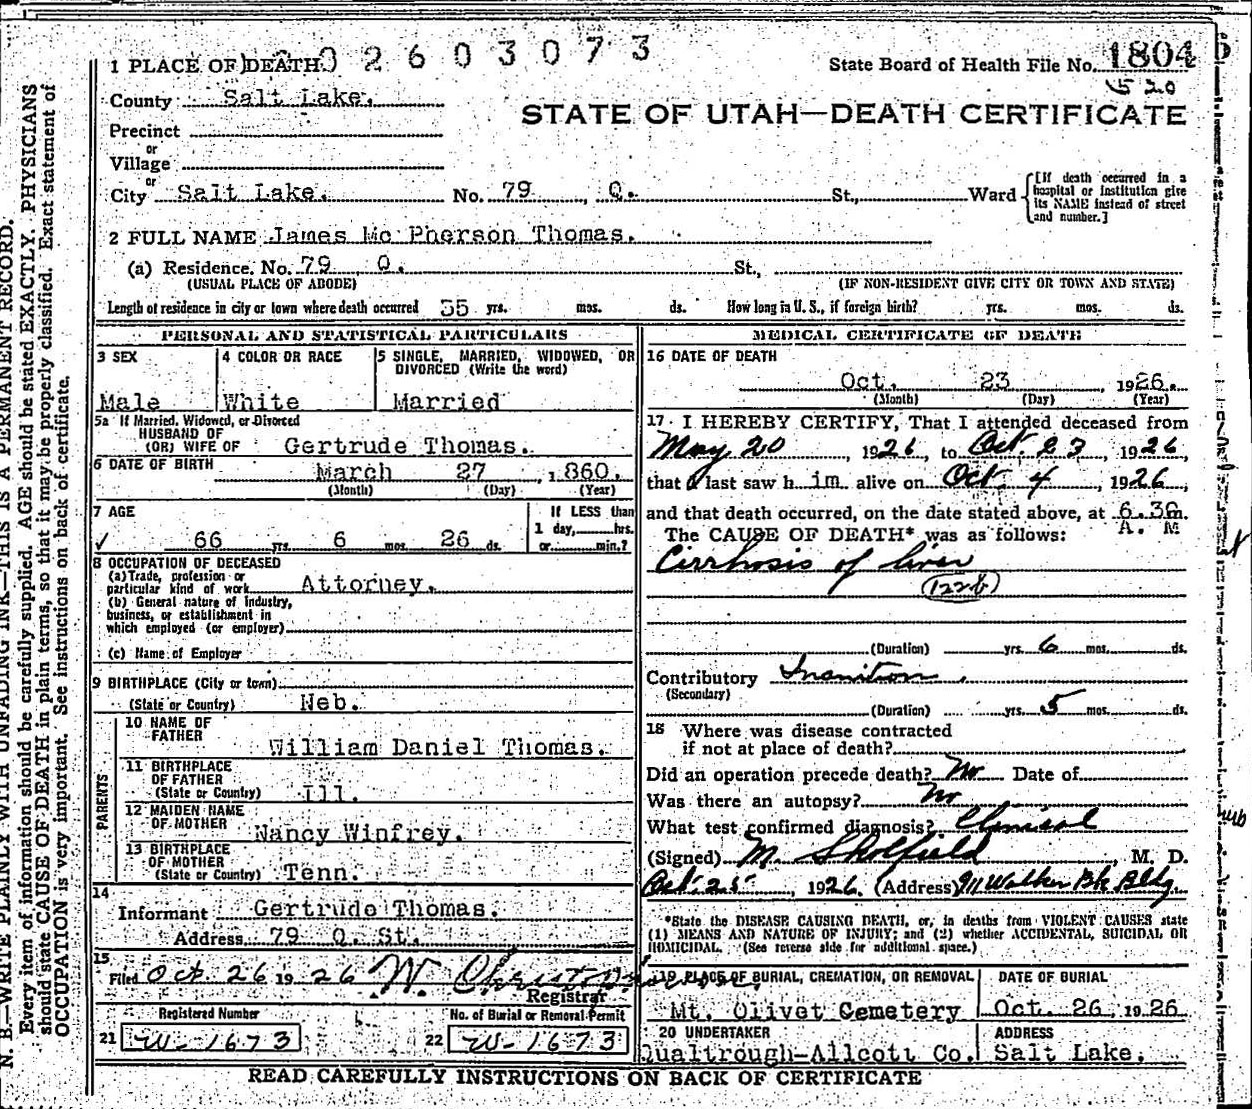 N. B.—WRITE PLAINLY WITH UNFADING INK—THIS IS A PERMANENT RECORD.
Every item of information should be carefully supplied. AGE should be stated EXACTLY. PHYSICIANS
should state CAUSE OF DEATH in plain terms, so that it may be properly classified. Exact statement of
OCCUPATION is very important. See instructions on back of certificate.
02603073
1 PLACE OF DEATH State Board of Health File No. 1804
1520
County Salt Lake.
STATE OF UTAH—DEATH CERTIFICATE
Precinct
or
Village
or
City Salt Lake. No. 79 Q. St., Ward
[If death occurred in a
hospital or institution give
its NAME instead of street
and number.]
2 FULL NAME James Mc Pherson Thomas.
(a) Residence. No. 79 Q. St.,
(USUAL PLACE OF ABODE) (IF NON-RESIDENT GIVE CITY OR TOWN AND STATE)
Length of residence in city or town where death occurred 35 yrs. mos. ds. How long in U. S., if foreign birth? yrs. mos. ds.
PERSONAL AND STATISTICAL PARTICULARS
3 SEX
Male
4 COLOR OR RACE
White
5 SINGLE, MARRIED, WIDOWED, OR
DIVORCED (Write the word)
Married
5a If Married, Widowed, or Divorced
HUSBAND OF
(OR) WIFE OF Gertrude Thomas.
6 DATE OF BIRTH
March 27, 1860.
(Month) (Day) (Year)
7 AGE
66 yrs. 6 mos. 26 ds.
If LESS than
1 day, hrs.
or min.?
8 OCCUPATION OF DECEASED
(a) Trade, profession or
particular kind of work Attorney.
(b) General nature of industry,
business, or establishment in
which employed (or employer)
(c) Name of Employer
9 BIRTHPLACE (City or town)
(State or Country) Neb.
PARENTS
10 NAME OF
FATHER
William Daniel Thomas.
11 BIRTHPLACE
OF FATHER
(State or Country) Ill.
12 MAIDEN NAME
OF MOTHER
Nancy Winfrey.
13 BIRTHPLACE
OF MOTHER
(State or Country) Tenn.
14
Informant Gertrude Thomas.
Address 79 Q. St.
15
Filed Oct. 26 1926
Registrar
Registered Number
21 W-1673
No. of Burial or Removal Permit
22 W-1673
MEDICAL CERTIFICATE OF DEATH
16 DATE OF DEATH
Oct. 23 1926.
(Month) (Day) (Year)
17 I HEREBY CERTIFY, That I attended deceased from
May 20, 1926, to Oct. 23, 1926,
that I last saw h im alive on Oct. 4, 1926,
and that death occurred, on the date stated above, at 6.30 m.
A. M
The CAUSE OF DEATH* was as follows:
Cirrhosis of liver
(122b)
(Duration) yrs. 6 mos. ds.
Contributory Inanition.
(Secondary)
(Duration) yrs. 5 mos. ds.
18 Where was disease contracted
if not at place of death?
Did an operation precede death? No Date of
Was there an autopsy? No
What test confirmed diagnosis? Clinical
(Signed) M. Skolfield, M. D.
Oct. 25, 1926. (Address) 911 Walker Bk Bldg.
*State the DISEASE CAUSING DEATH, or, in deaths from VIOLENT CAUSES state
(1) MEANS AND NATURE OF INJURY; and (2) whether ACCIDENTAL, SUICIDAL OR
HOMICIDAL. (See reverse side for additional space.)
19 PLACE OF BURIAL, CREMATION, OR REMOVAL
Mt. Olivet Cemetery
DATE OF BURIAL
Oct. 26, 1926
20 UNDERTAKER
Qualtrough-Allcott Co.
ADDRESS
Salt Lake.
READ CAREFULLY INSTRUCTIONS ON BACK OF CERTIFICATE